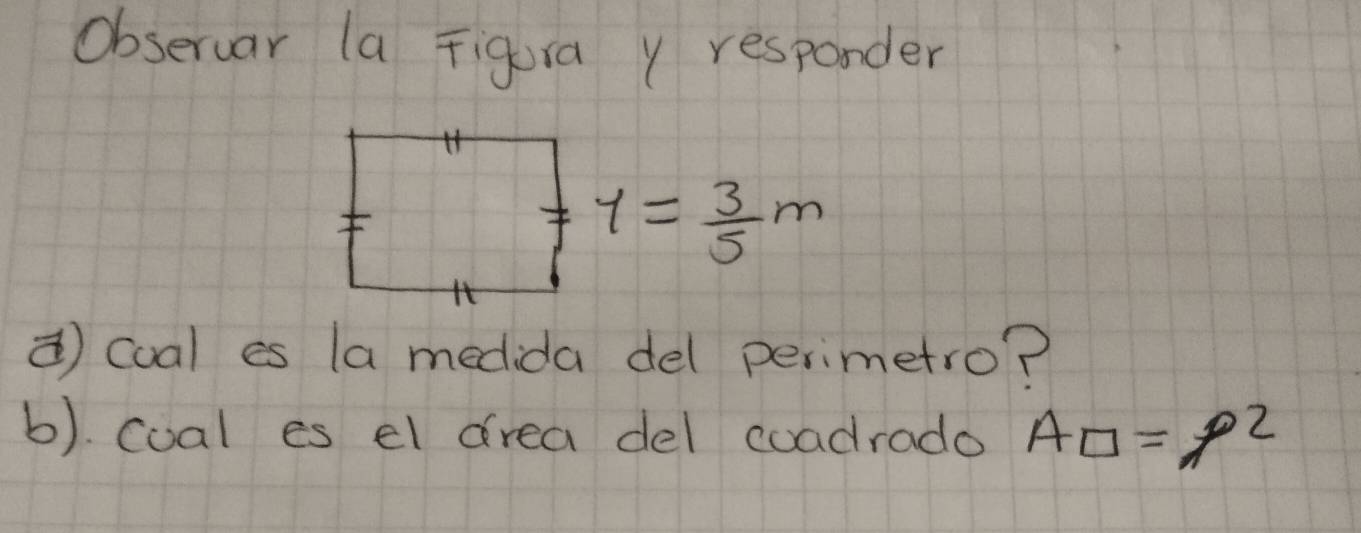 Observar la Figura y responder
Y = 3/5 m
a) cual es la medida del perimetro?
b). cual es el área del cuadrado A□ = 2